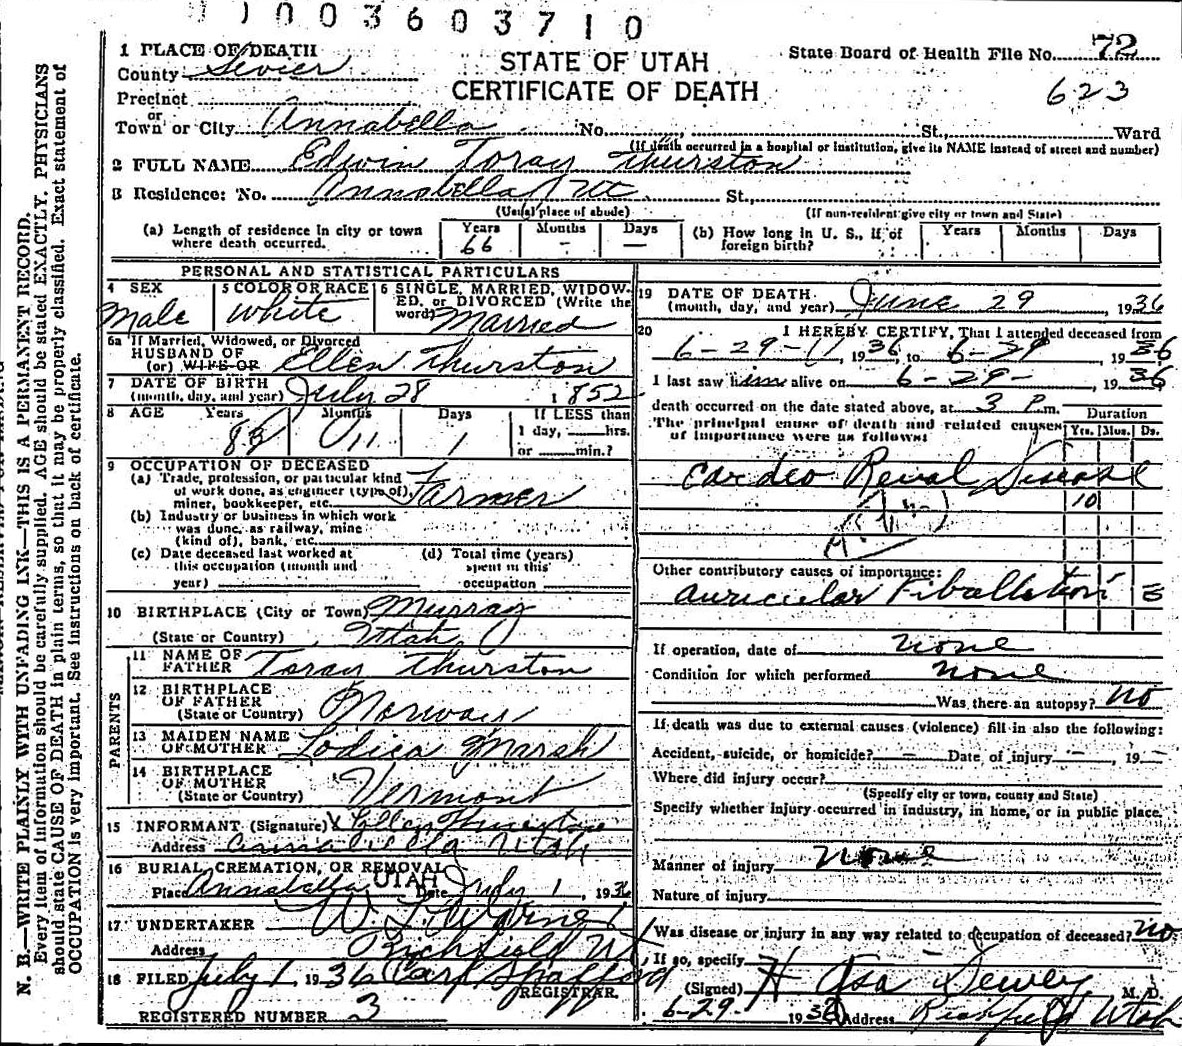 1003603710
1 PLACE OF DEATH
County Sevier
STATE OF UTAH
CERTIFICATE OF DEATH
State Board of Health File No. 72
623
Precinct
or
Town or City Annabella No. St., Ward
(If death occurred in a hospital or institution, give its NAME instead of street and number)
2 FULL NAME Edwin Toray Thurston
3 Residence: No. Annabella Ut St.,
(Usual place of abode) (If non-resident give city or town and State)
(a) Length of residence in city or town where death occurred. Years 66 Months - Days - (b) How long in U. S., if of foreign birth? Years Months Days
PERSONAL AND STATISTICAL PARTICULARS
4 SEX Male
5 COLOR OR RACE White
6 SINGLE, MARRIED, WIDOWED, or DIVORCED (Write the word) Married
6a If Married, Widowed, or Divorced
HUSBAND OF
(or) WIFE OF Ellen Thurston
7 DATE OF BIRTH
(month, day, and year) July 28 1852
8 AGE Years 83 Months 11 Days 1 If LESS than
1 day, hrs.
or min.?
9 OCCUPATION OF DECEASED
(a) Trade, profession, or particular kind
of work done, as engineer (type of),
miner, bookkeeper, etc. Farmer
(b) Industry or business in which work
was done, as railway, mine
(kind of), bank, etc.
(c) Date deceased last worked at
this occupation (month and
year)
(d) Total time (years)
spent in this
occupation
10 BIRTHPLACE (City or Town) Murray
(State or Country) Utah
PARENTS
11 NAME OF
FATHER Toray Thurston
12 BIRTHPLACE
OF FATHER
(State or Country) Norway
13 MAIDEN NAME
OF MOTHER Lodica Marsh
14 BIRTHPLACE
OF MOTHER
(State or Country) Vermont
15 INFORMANT (Signature) x Ellen Thurston
Address Annabella Utah
16 BURIAL, CREMATION, OR REMOVAL
Place Annabella UTAH Date July 1, 1936
17 UNDERTAKER
Address Richfield Ut.
18 FILED July 1 1936 Carl Spafford
REGISTRAR
REGISTERED NUMBER 3
19 DATE OF DEATH
(month, day, and year) June 29, 1936
20 I HEREBY CERTIFY, That I attended deceased from
6-29-, 1936, to 6-29, 1936
I last saw him alive on 6-29-, 1936
death occurred on the date stated above, at 3 P.m.
The principal cause of death and related causes
of importance were as follows:
Duration
Yrs. Mos. Ds.
Cardeo Renal Disease
10
Other contributory causes of importance:
Auricular Fibullation 3
If operation, date of none
Condition for which performed none
Was there an autopsy? no
If death was due to external causes (violence) fill in also the following:
Accident, suicide, or homicide? - Date of injury -, 19-
Where did injury occur?
(Specify city or town, county and State)
Specify whether injury occurred in industry, in home, or in public place.
Manner of injury none
Nature of injury
Was disease or injury in any way related to occupation of deceased? no
If so, specify
(Signed) H Asa Dewey M. D.
6-29- 1936 Address Richfield Utah
N. B.—WRITE PLAINLY WITH UNFADING INK—THIS IS A PERMANENT RECORD.
Every item of information should be carefully supplied. AGE should be stated EXACTLY. PHYSICIANS
should state CAUSE OF DEATH in plain terms, so that it may be properly classified. Exact statement of
OCCUPATION is very important. See instructions on back of certificate.